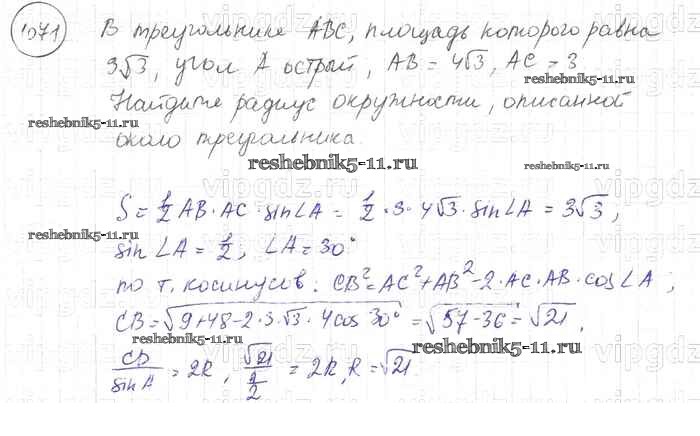 1071
В треугольнике ABC, площадь которого равна
3√3, угол A острый, AB = 4√3, AC = 3.
Найдите радиус окружности, описанной
reshebnik5-11.ru
около треугольника.
reshebnik5-11.ru
reshebnik5-11.ru
S = 1/2 AB · AC · sin∠A = 1/2 · 3 · 4√3 · sin∠A = 3√3,
reshebnik5-11.ru
sin∠A = 1/2, ∠A = 30°
по т. косинусов: CB² = AC² + AB² - 2 · AC · AB · cos∠A;
CB = √(9 + 48 - 2 · 3 · √3 · 4cos 30°) = √(57 - 36) = √21,
reshebnik5-11.ru
reshebnik5-11.ru
CB/sin A = 2R, √21/(1/2) = 2R, R = √21.